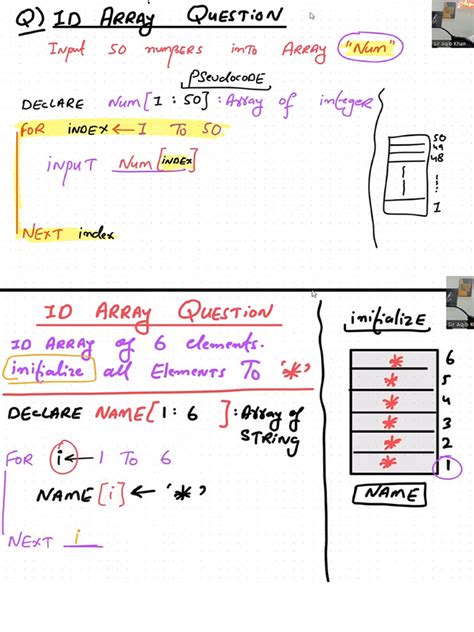 Q) 1D ARRAY QUESTION
Input 50 numbers into ARRAY "Num"
PSeudocode
DECLARE Num[1:50]:Array of integer
FOR INDEX ← 1 TO 50
INPUT Num[INDEX]
NEXT index
50
49
48
1
Sir Aqib Khan
1D ARRAY QUESTION
1D ARRAY of 6 elements.
initialize all Elements To '*'
DECLARE NAME[1:6]:Array of
STRING
FOR i ← 1 TO 6
NAME[i] ← '*'
NEXT i
initialize
* 6
* 5
* 4
* 3
* 2
* 1
NAME
Sir Aqib K